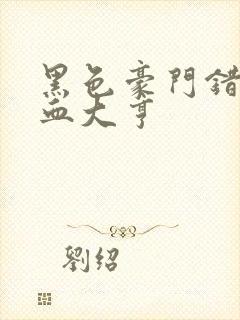 黑色豪門錯
血大亨
劉紹